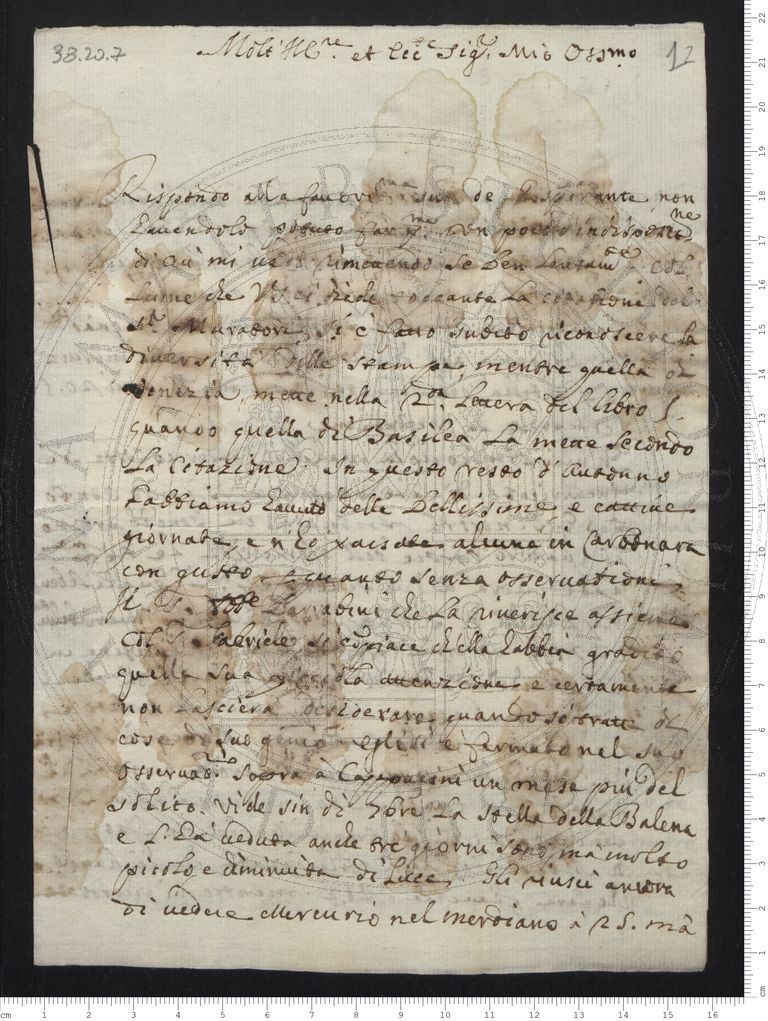 33.20.7
Molt' Ill.re et Ecc.te Sig.r Mio Oss.mo
12
Rispondo alla favoritissima sua de spirante, non
havendolo potuto far p.ma con poco indispositne
di cui mi va rimovendo se ben lentam.te. Col
lume che V.S. ci diede toccante la citazione del
S.r Muratori, si è fatto subito riconoscere la
diversità delle stampe, mentre quella di
Venezia, mette nella 2.da lettera del libro
quando quella di Basilea la mette secondo
la citazione. In questo resto d'Autunno
habbiamo havuto delle bellissime e cattive
giornate, e n'ho passate alcune in Carbonara
con gusto quanto senza osservationi.
Il S. Barrabini che la riverisce assieme
col S. Gabriele si compiace ch'ella habbia gradito
quella sua piccola attenzione e certamente
non lascierà desiderare quando si tratti di
cose di suo genio. Egli si è fermato nel suo
osservat.rio sopra à Capuccini un mese più del
solito. Vide sin di 7bre la stella della Balena
e l'hà veduta anche tre giorni sono, mà molto
picolo e diminuita di luce. Gli riuscì ancora
di vedere Mercurio nel merdiano à 25. mà